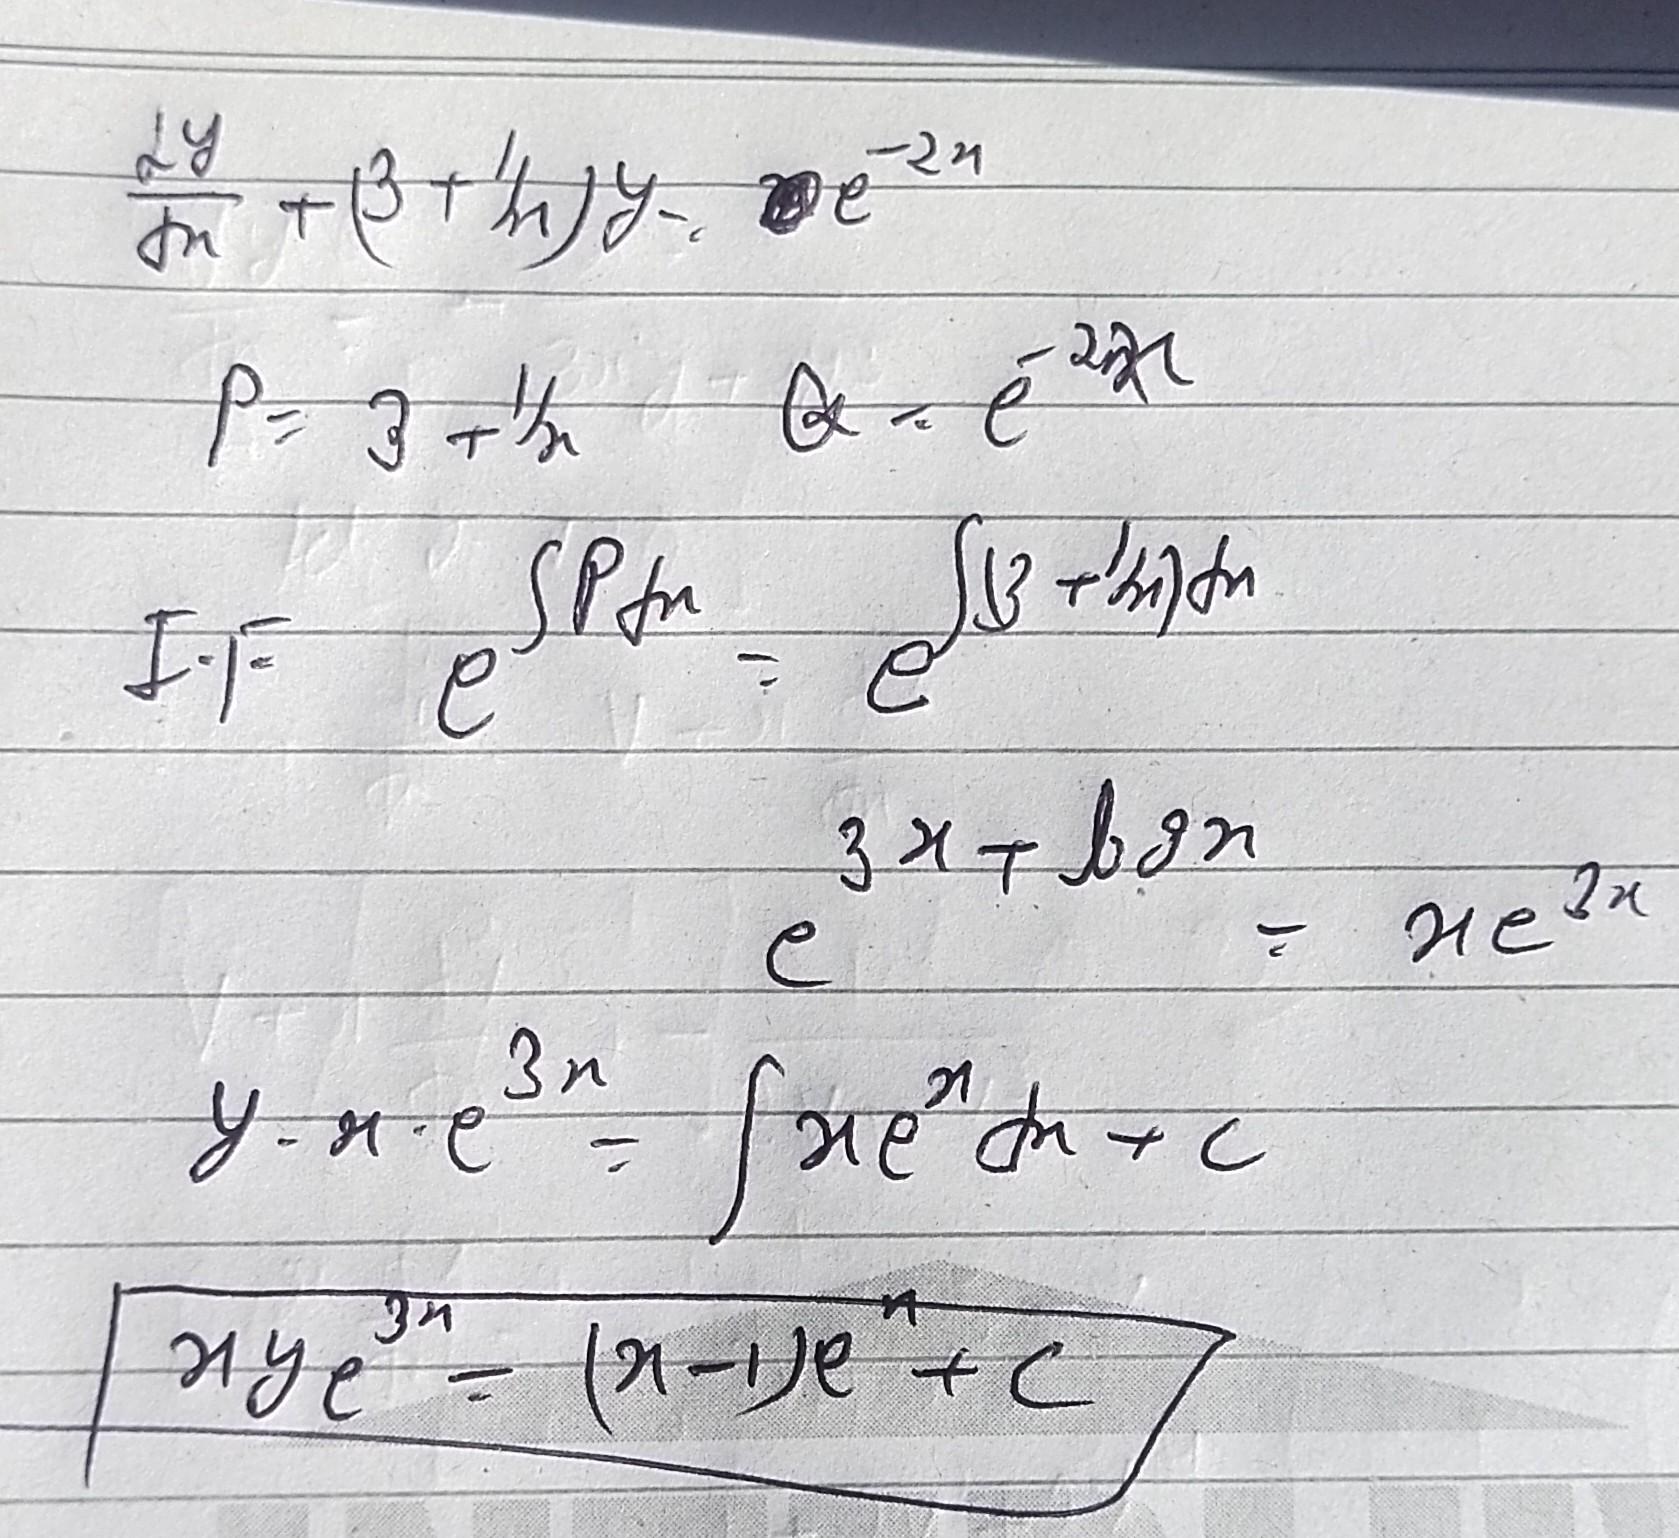 dy/dx + (3 + 1/x) y = e^{-2x}
P = 3 + 1/x Q = e^{-2x}
I.F = e^{∫P dx} = e^{∫(3 + 1/x) dx}
e^{3x + log x} = x e^{3x}
y · x · e^{3x} = ∫ x e^x dx + c
x y e^{3x} = (x - 1) e^x + c